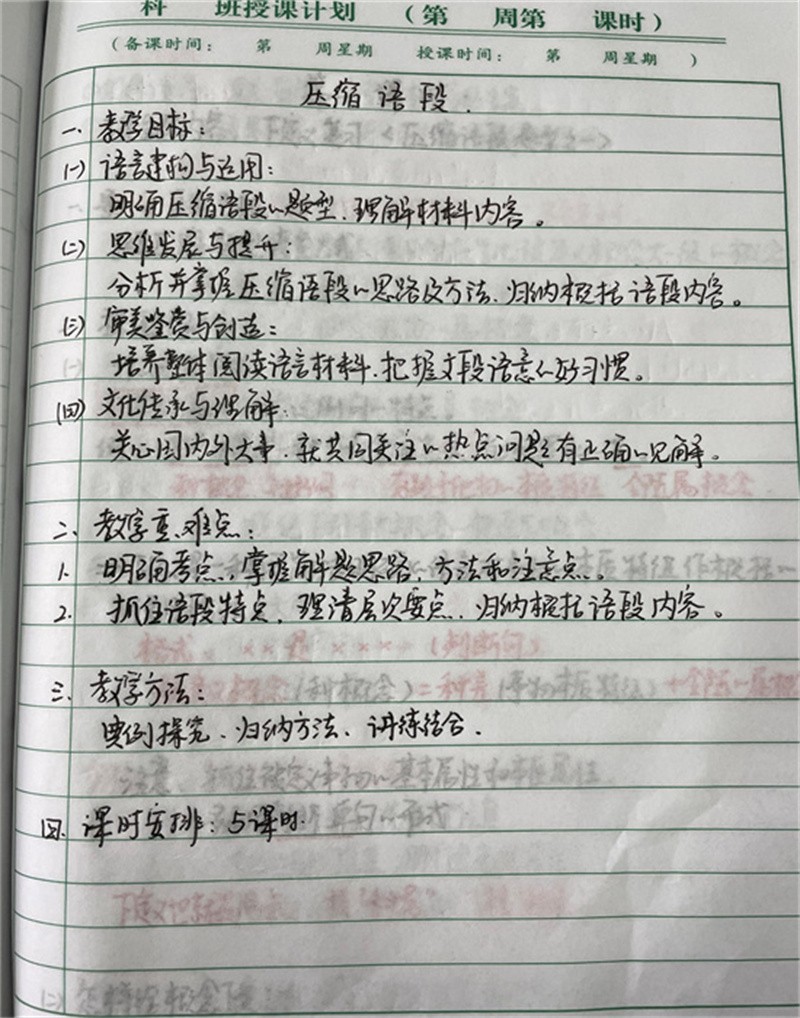 科 班授课计划 （第 周第 课时）
（备课时间： 第 周星期 授课时间： 第 周星期 ）
压缩语段.
一、教学目标：
(一) 语言建构与运用：
明确压缩语段的题型、理解材料内容。
(二) 思维发展与提升：
分析并掌握压缩语段的思路及方法、归纳概括语段内容。
(三) 审美鉴赏与创造：
培养整体阅读语言材料、把握文段语意的好习惯。
(四) 文化传承与理解：
关心国内外大事、就共同关注的热点问题有正确的见解。
二、教学重、难点：
1. 明确考点，掌握解题思路、方法和注意点。
2. 抓住语段特点、理清层次要点、归纳概括语段内容。
三、教学方法：
典例探究、归纳方法、讲练结合.
四. 课时安排：5课时.